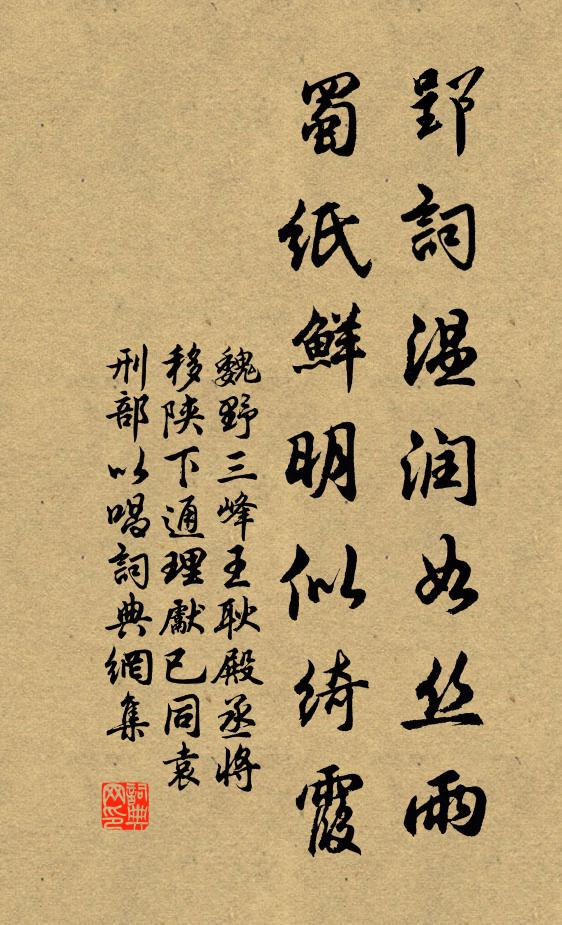 郢詞温润如丝雨
蜀纸鮮明似绮霞
魏野三峰王耿殿丞將
移陝下通理獻已同袁
刑部以唱詞典網集
詞典网印